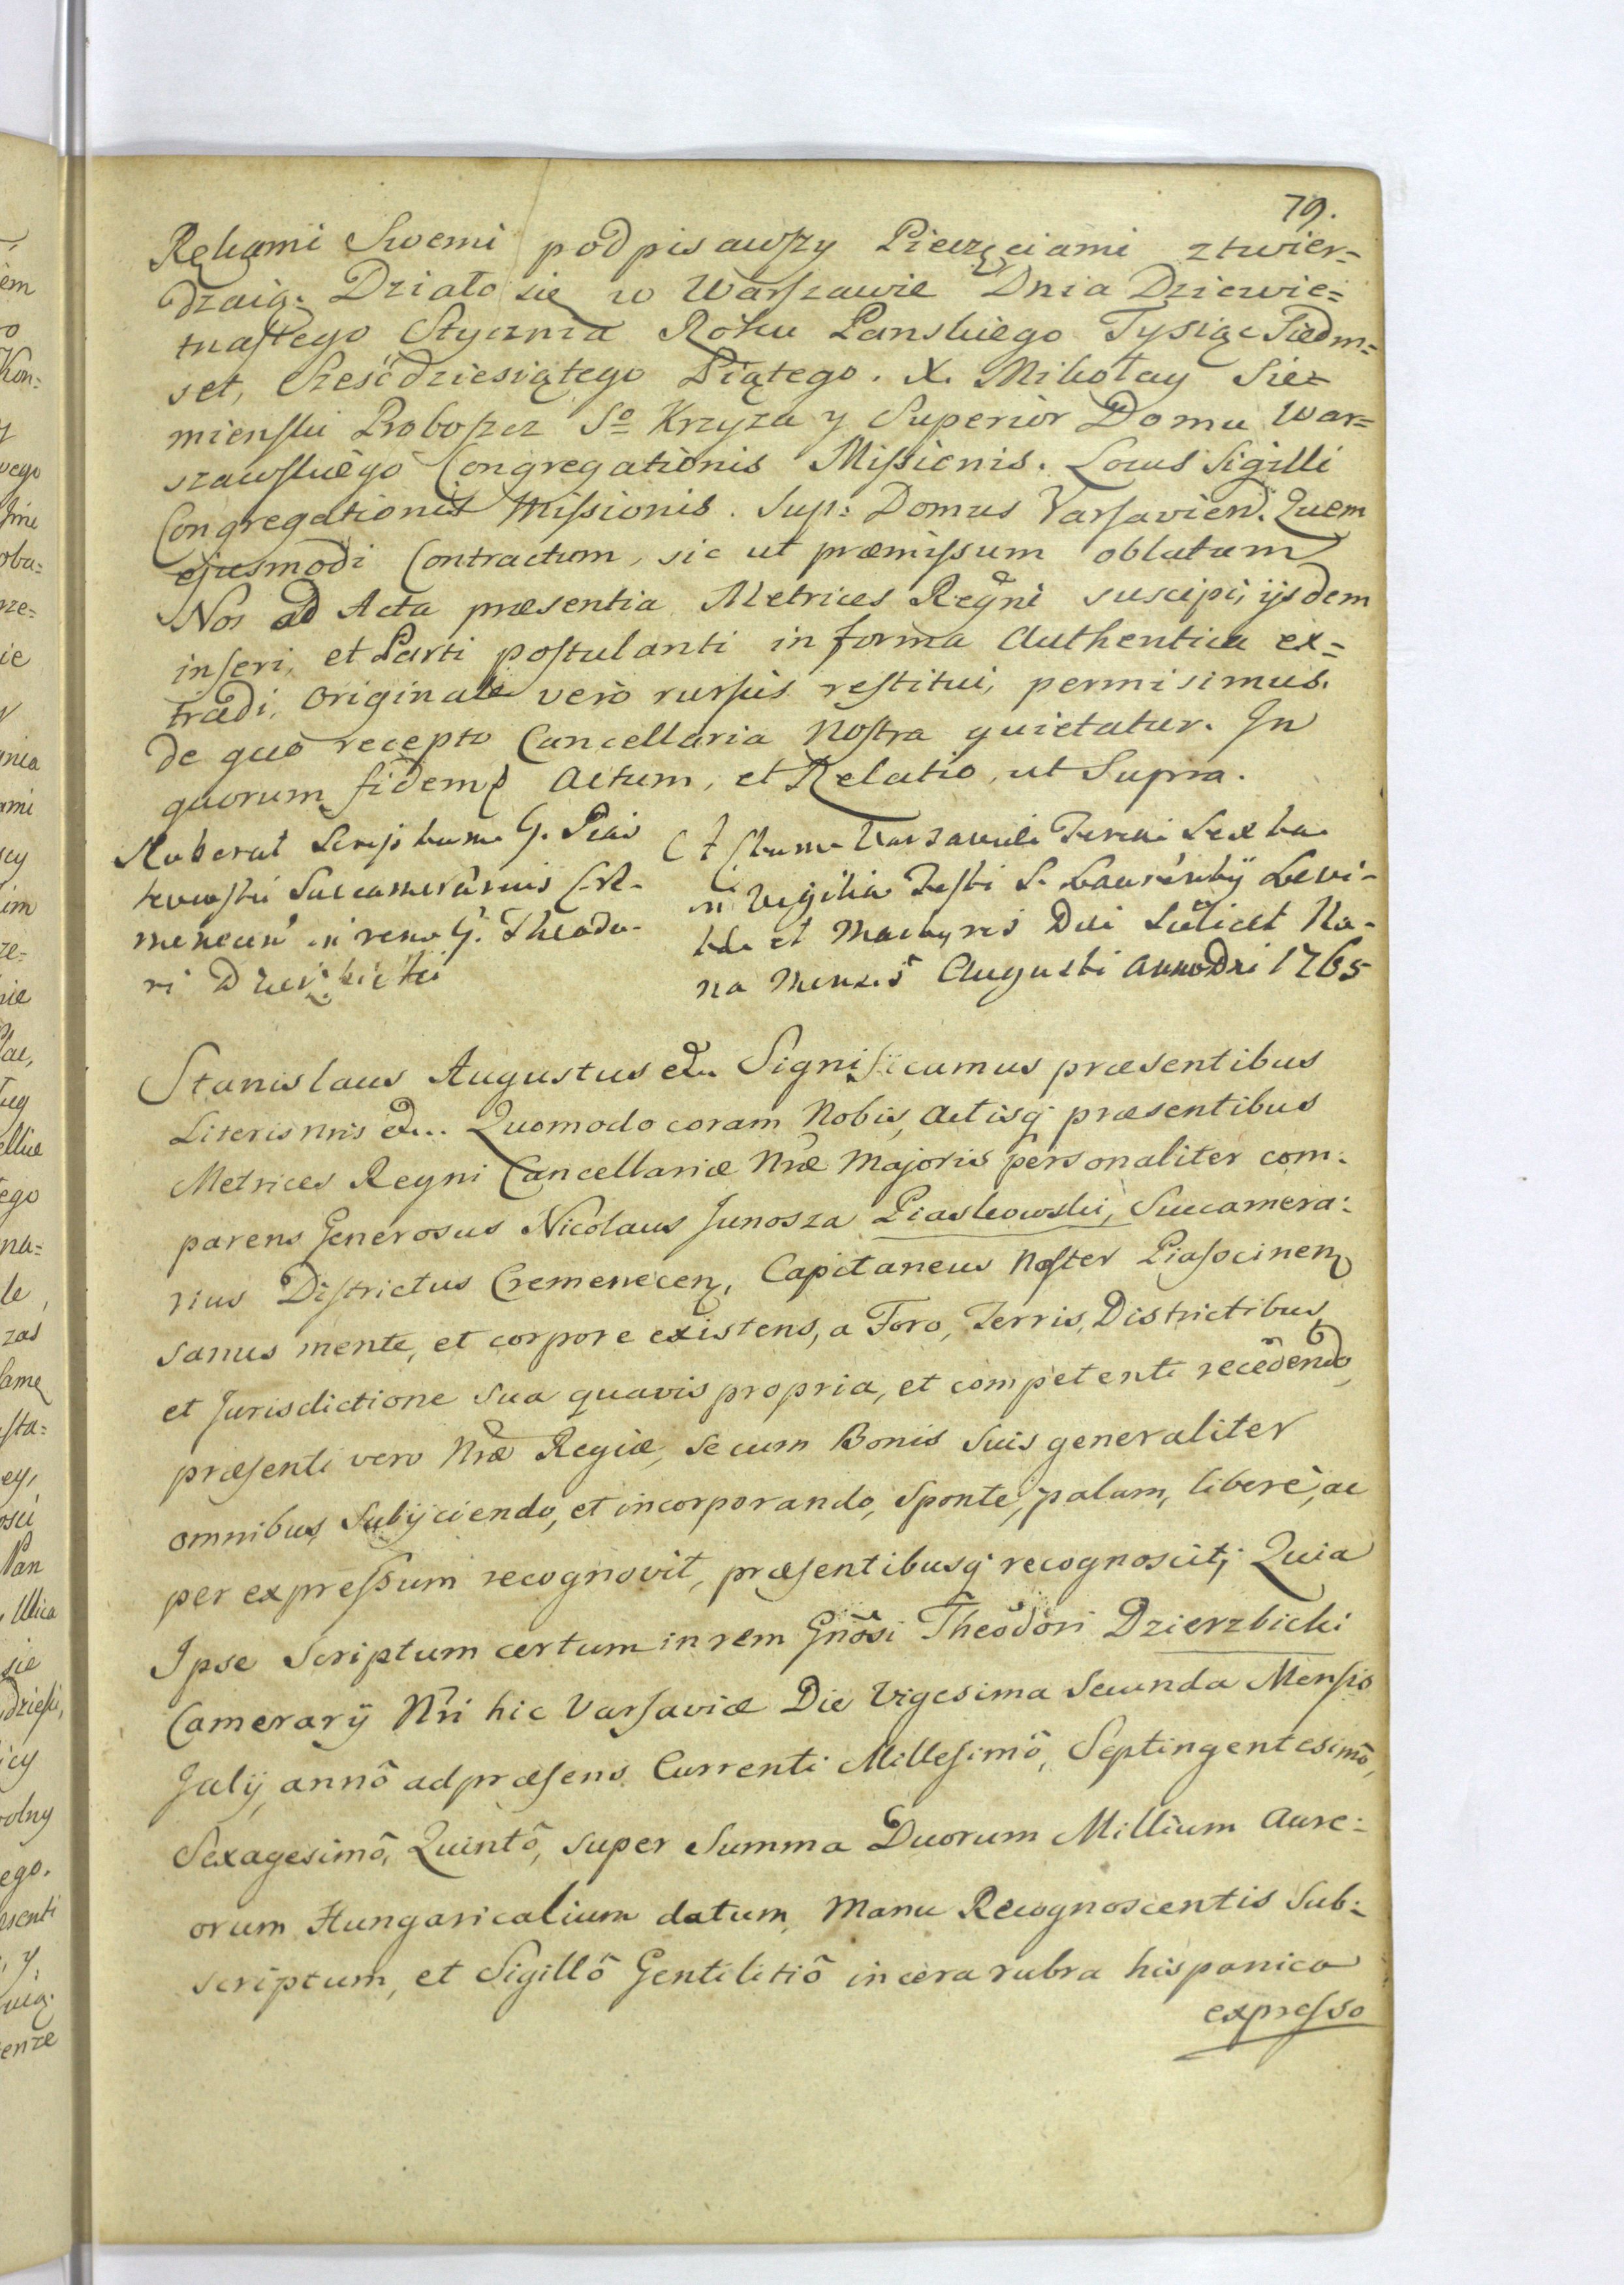 79.
Rękami Swemi podpisawszy Pieczęciami ztwier=
dzaią. Działo się w Warszawie Dnia Dziewię=
tnastego Stycznia Roku Panskiego Tysiąc Siedm=
set, Sześćdziesiątego Piątego. X. Mikołay Sie=
mienski Proboszcz So Krzyza y Superior Domu War=
szawskiego Congregationis Missionis. Locus Sigilli
Congregationis Missionis. Sup: Domus Varsavien. Quem
ejusmodi Contractum, sic ut præmissum oblatum
Nos ad Acta præsentia Metrices Regni suscipi, ijsdem
inseri, et Parti postulanti in forma Authentica ex=
tradi, Originale verò rursùs restitui, permisimus.
de quò recepto Cancellaria Nostra quietatur. In
quorum fidem Actum, et Relatio, ut Supra.
Roborat Scriptum G. Pias
kowski Succamerarius Cre-
menecen in rem G. Theodo-
ri Dzierzbicki
Actum Varsaviæ Feria Sexta
in Vigilia Festi S. Laurentij Levi-
tæ et Martyris Die Scilicet No-
na Mensis Augusti Anno Dni 1765
Stanislaus Augustus etc. Significamus præsentibus
Literis Nris etc. Quomodo coram Nobis, Actisq præsentibus
Metrices Regni Cancellariæ Nræ Majoris personaliter com:
parens Generosus Nicolaus Junosza Piaskowski, Succamera:
rius Districtus Cremenecen, Capitaneus Noster Piasocinen
sanus mente, et corpore existens, a Foro, Terris, Districtibus
et Jurisdictione sua quavis propria, et competenti recedendo,
præsenti vero Nræ Regiæ, se cum Bonis Suis generaliter
omnibus Subijciendo, et incorporando, Sponte, palam, liberè, ac
per expressum recognovit, præsentibusq recognoscit; Quia
Ipse Scriptum certum in rem Gnosi Theodori Dzierzbicki
Camerarÿ Nri hic Varsaviæ Die Vigesima Secunda Mensis
Julÿ, annô ad præsens Currenti Millesimô, Septingentesimô,
Sexagesimô, Quintô, super Summa Duorum Millium Aure:
orum Hungaricalium datum, Manu Recognoscentis Sub:
scriptum, et Sigillô Gentilitiô in cera rubra hispanica
expresso